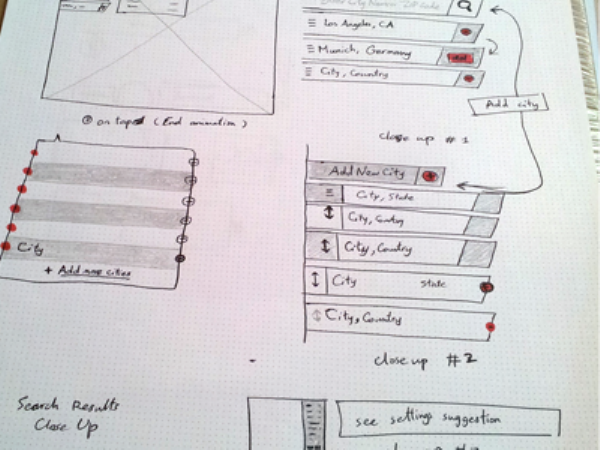 Los Angeles, CA
Munich, Germany
City, Country
Add city
on taped (End animation)
close up #1
Add New City
City, State
City, Country
City, Country
City
+ Add new cities
City State
City, Country
close up #2
Search Results
Close Up
see setting suggestion